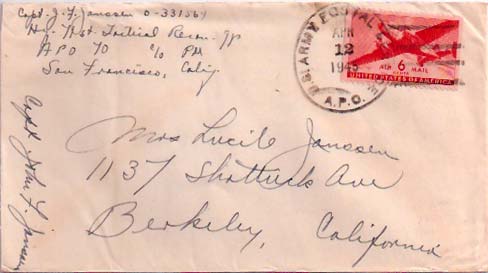 Capt. J. F. Janssen O-331567
Hq. 71st Tactical Recon. Gp
APO 70 c/o PM
San Francisco, Calif
U.S. ARMY POSTAL
APR
12
1945
A.P.O.
AIR 6 MAIL
CENTS
UNITED STATES OF AMERICA
Mrs Lucile Janssen
1137 Shattuck Ave
Berkeley, California
Capt John F. Janssen